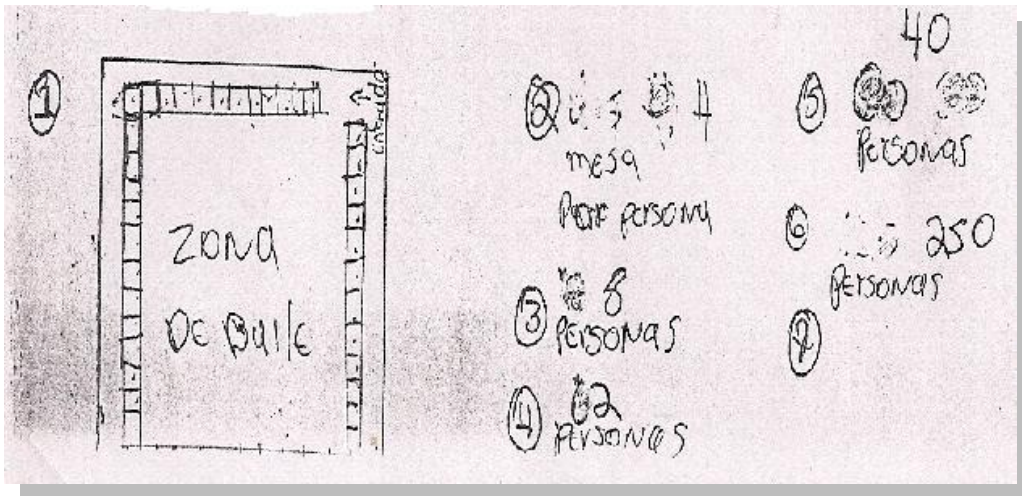 1
entrada
ZONA
DE BAILE
2 4
mesa
Por persona
3 8
PERSONAS
4 2
PERSONAS
40
5
PERSONAS
6 250
PERSONAS
7